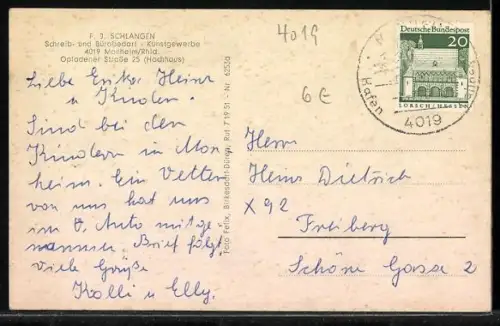 F. J. SCHLANGEN
Schreib- und Bürobedarf - Kunstgewerbe
4019 Monheim/Rhld.
Opladener Straße 25 (Hochhaus)
4019
6 €
Deutsche Bundespost
20
LORSCH/HESSEN
4019
Liebe Erika Heinz
u Kinder.
Sind bei den
Kindern in Mon
heim. Ein Vetter
von uns hat uns
im Auto mitge-
nommen. Brief folgt.
Viele Grüße
Kolli u Elly.
Foto Felix, Birkesdorf-Düren, Ruf 7 19 51 - Nr. 65536
Herrn
Heinz Dietrich
X 92
Freiberg
Schöne Gasse 2